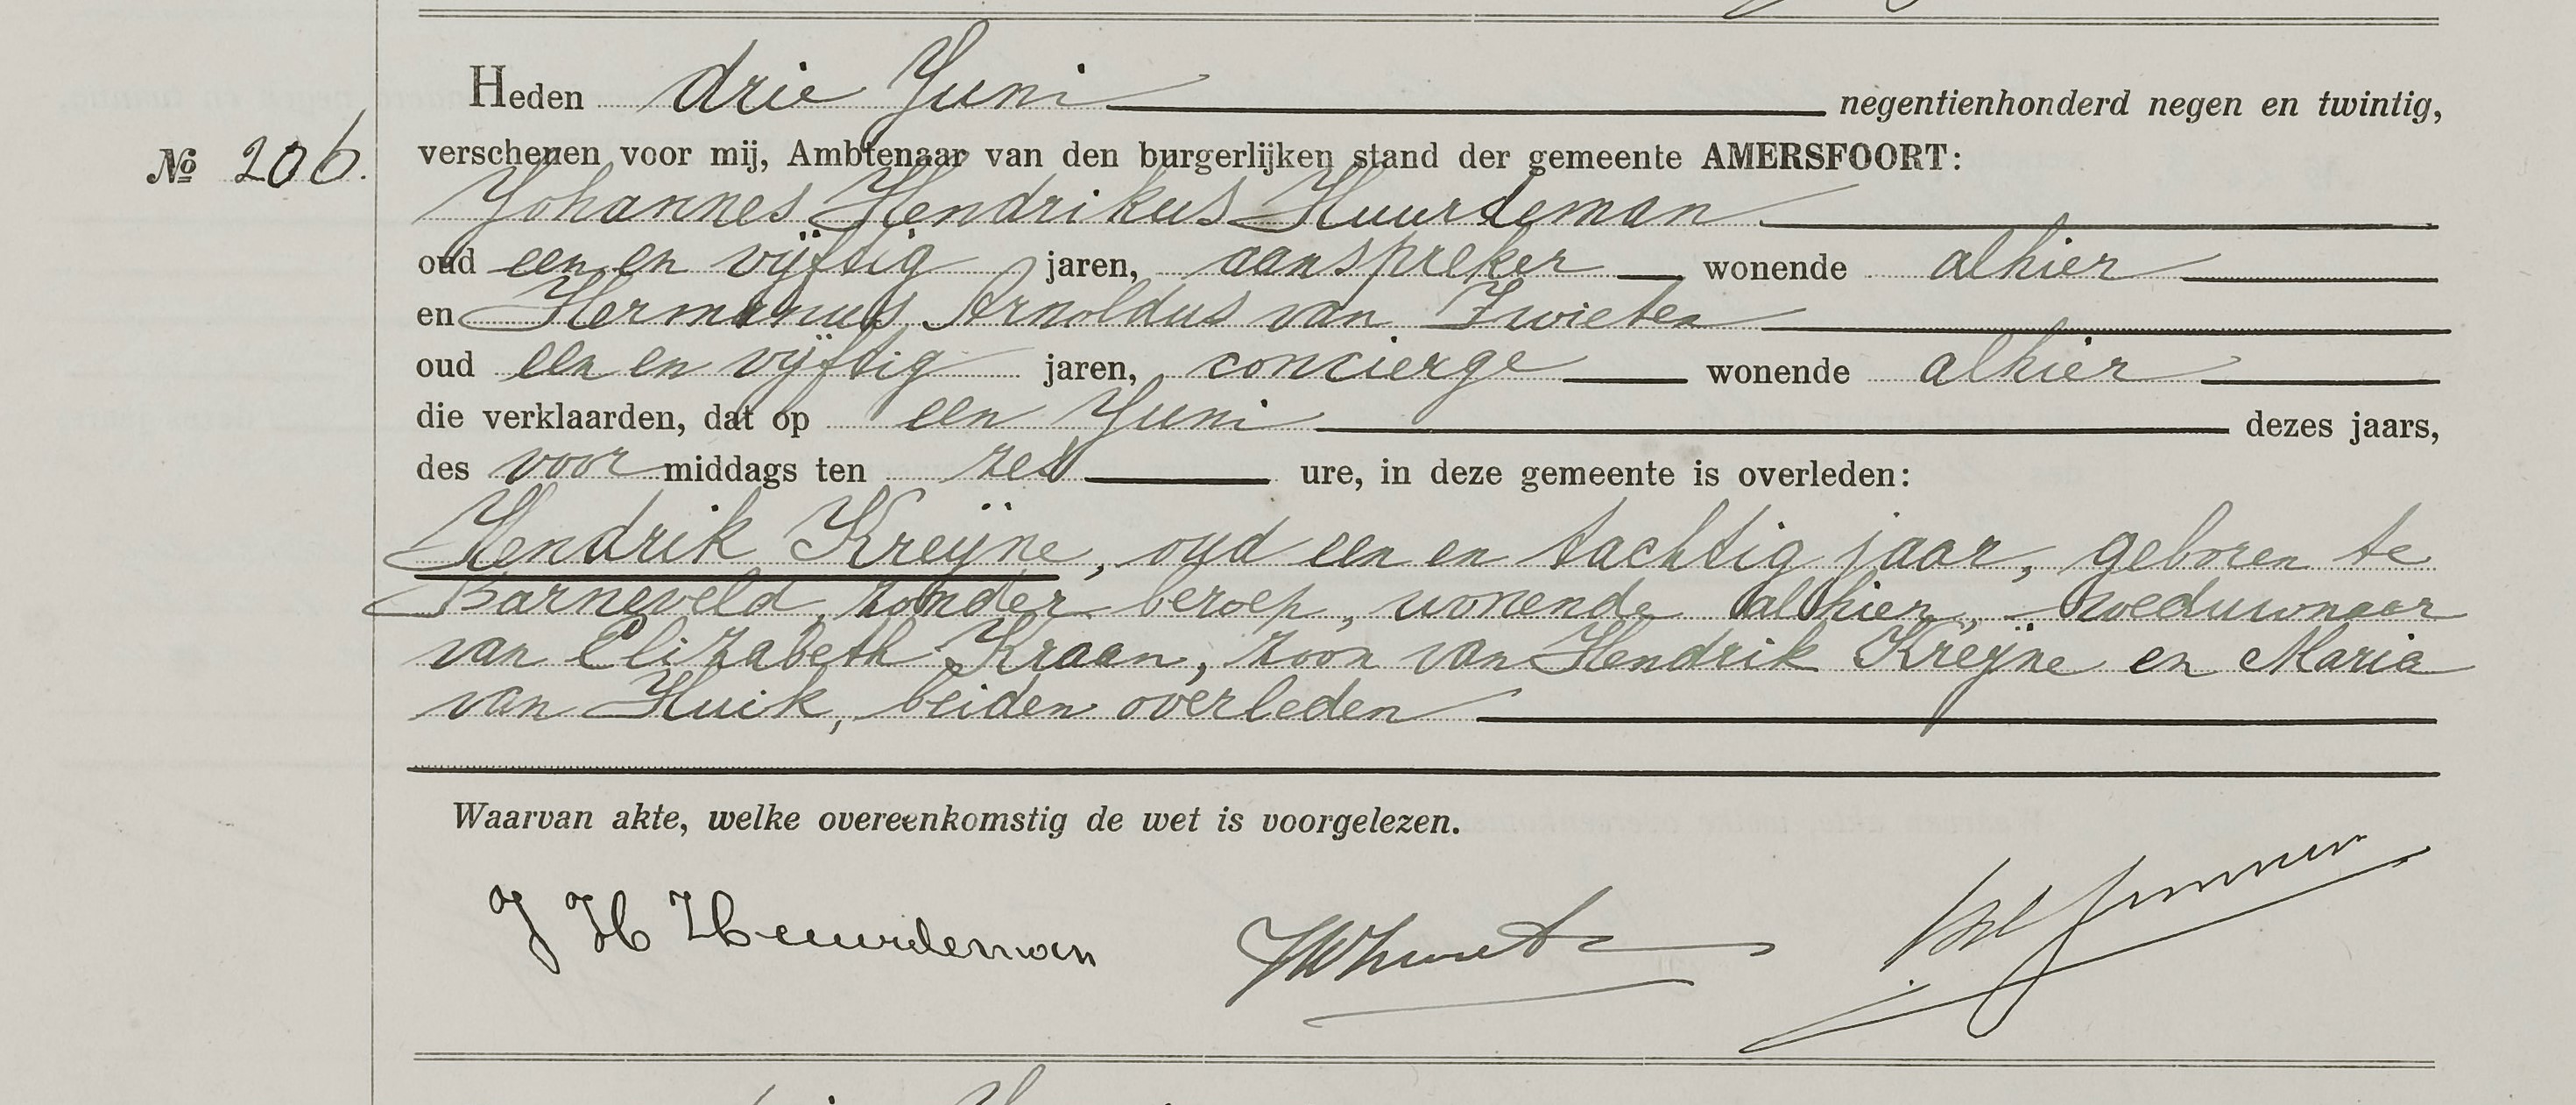 Heden drie Juni negentienhonderd negen en twintig,
No 206. verschenen voor mij, Ambtenaar van den burgerlijken stand der gemeente AMERSFOORT:
Johannes Hendrikus Huurdeman
oud een en vijftig jaren, aanspreker wonende alhier
en Hermanus Arnoldus van Zwieten
oud een en vijftig jaren, concierge wonende alhier
die verklaarden, dat op een Juni dezes jaars,
des voor middags ten zes ure, in deze gemeente is overleden:
Hendrik Kreijne, oud een en tachtig jaar, geboren te
Barneveld, zonder beroep, wonende alhier, weduwnaar
van Elizabeth Kraan, zoon van Hendrik Kreijne en Maria
van Huik, beiden overleden
Waarvan akte, welke overeenkomstig de wet is voorgelezen.
J H Heuurdeman